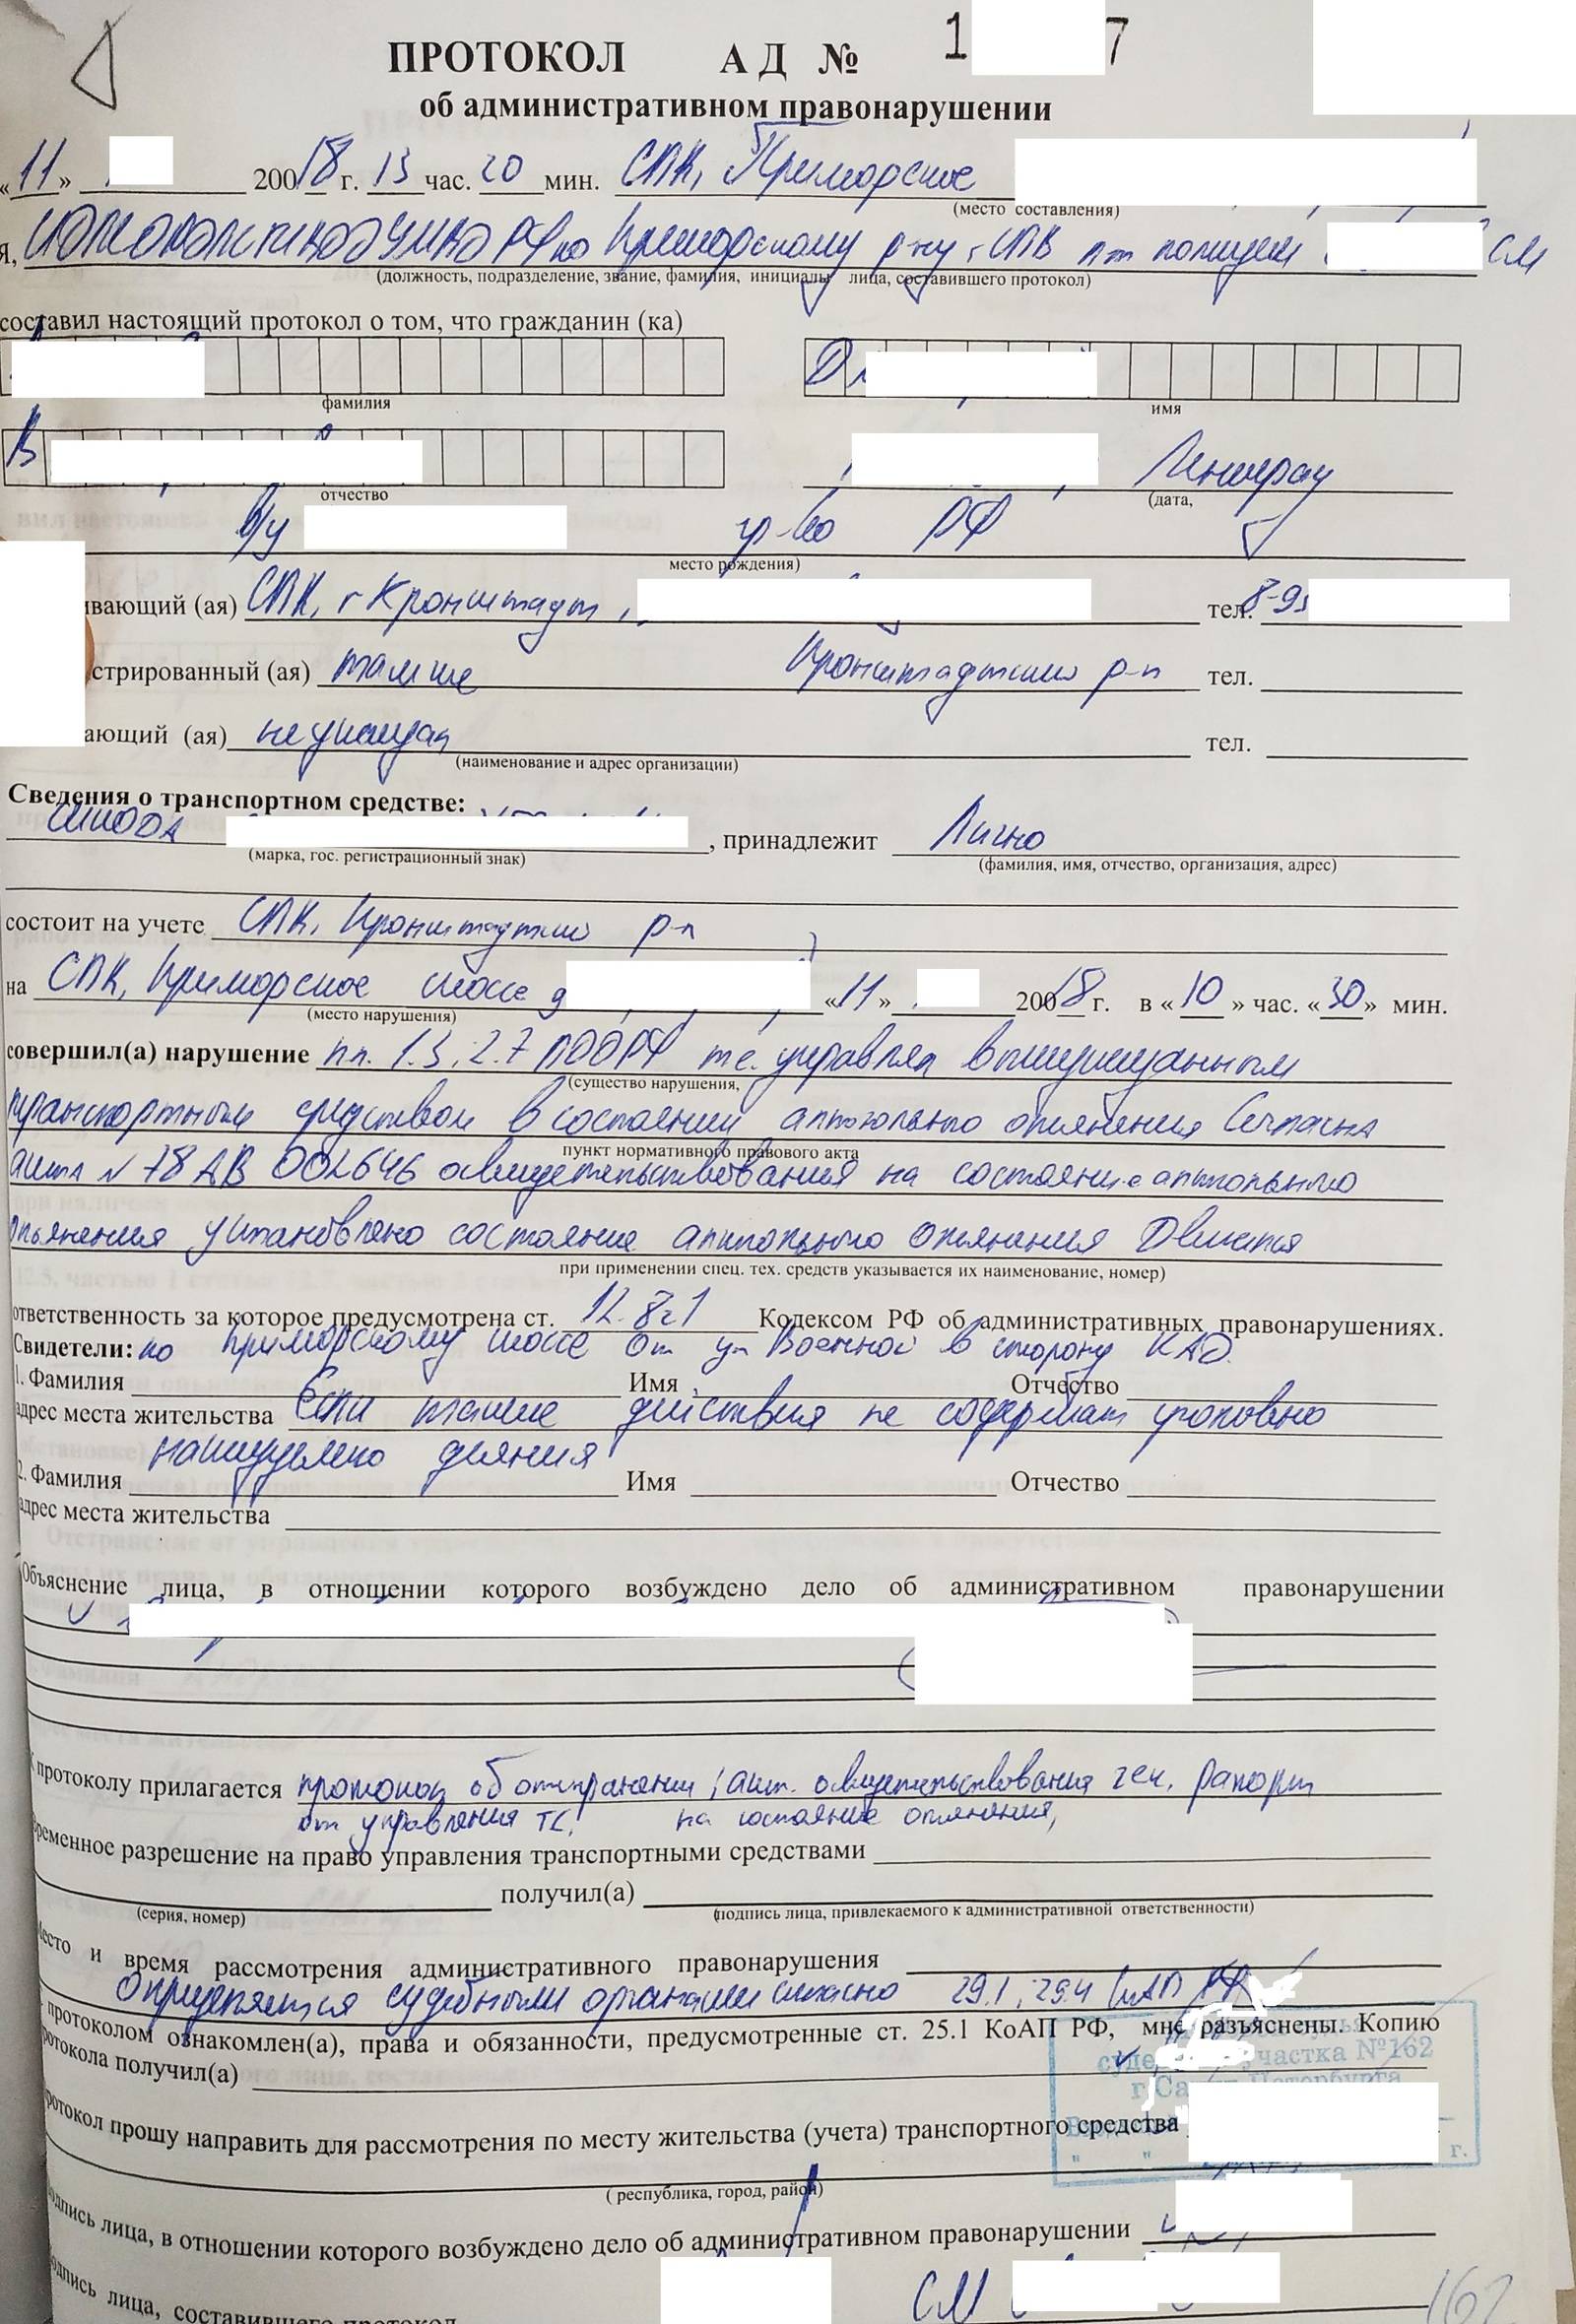 ПРОТОКОЛ АД № 1 7
об административном правонарушении
«11» 2008 18 г. 13 час. 20 мин. СПб, Приморское
(место составления)
Я, по Приморскому р-ну г. СПб лт полиции СМ
(должность, подразделение, звание, фамилия, инициалы лица, составившего протокол)
составил настоящий протокол о том, что гражданин (ка)
Д
фамилия имя
В Ленинград
отчество (дата,
в/у гр-во РФ
место рождения)
ивающий (ая) СПб, г Кронштадт, тел. 8-9
стрированный (ая) там же Кронштадтский р-н тел.
ающий (ая) не указал тел.
(наименование и адрес организации)
Сведения о транспортном средстве:
ШКОДА , принадлежит Лично
(марка, гос. регистрационный знак) (фамилия, имя, отчество, организация, адрес)
состоит на учете СПб, Кронштадтский р-н
на СПб, Приморское шоссе д «11» 20018 г. в «10» час. «30» мин.
(место нарушения)
совершил(а) нарушение пп. 1.3, 2.7 ПДДРФ т.е. управлял вышеуказанным
(существо нарушения,
транспортным средством в состоянии алкогольного опьянения Согласно
пункт нормативного правового акта
акта № 78 АВ 002646 освидетельствования на состояние алкогольного
опьянения установлено состояние алкогольного опьянения Двигался
при применении спец. тех. средств указывается их наименование, номер)
ответственность за которое предусмотрена ст. 12.8ч1 Кодексом РФ об административных правонарушениях.
Свидетели: по приморскому шоссе от ул Военной в сторону КАД.
1. Фамилия Имя Отчество
адрес места жительства Если такие действия не содержат уголовно
наказуемого деяния
2. Фамилия Имя Отчество
адрес места жительства
Объяснение лица, в отношении которого возбуждено дело об административном правонарушении
К протоколу прилагается протокол об отстранении, акт. освидетельствования чек, рапорт
от управления ТС, на состояние опьянения,
временное разрешение на право управления транспортными средствами
получил(а)
(серия, номер) (подпись лица, привлекаемого к административной ответственности)
Место и время рассмотрения административного правонарушения
Определяется судебными органами согласно 29.1, 29.4 КоАП РФ
протоколом ознакомлен(а), права и обязанности, предусмотренные ст. 25.1 КоАП РФ, мне разъяснены. Копию
протокола получил(а)
участка №162
г. Санкт-Петербурга
г.
протокол прошу направить для рассмотрения по месту жительства (учета) транспортного средства
( республика, город, район)
подпись лица, в отношении которого возбуждено дело об административном правонарушении
подпись лица, составившего протокол СМ
162